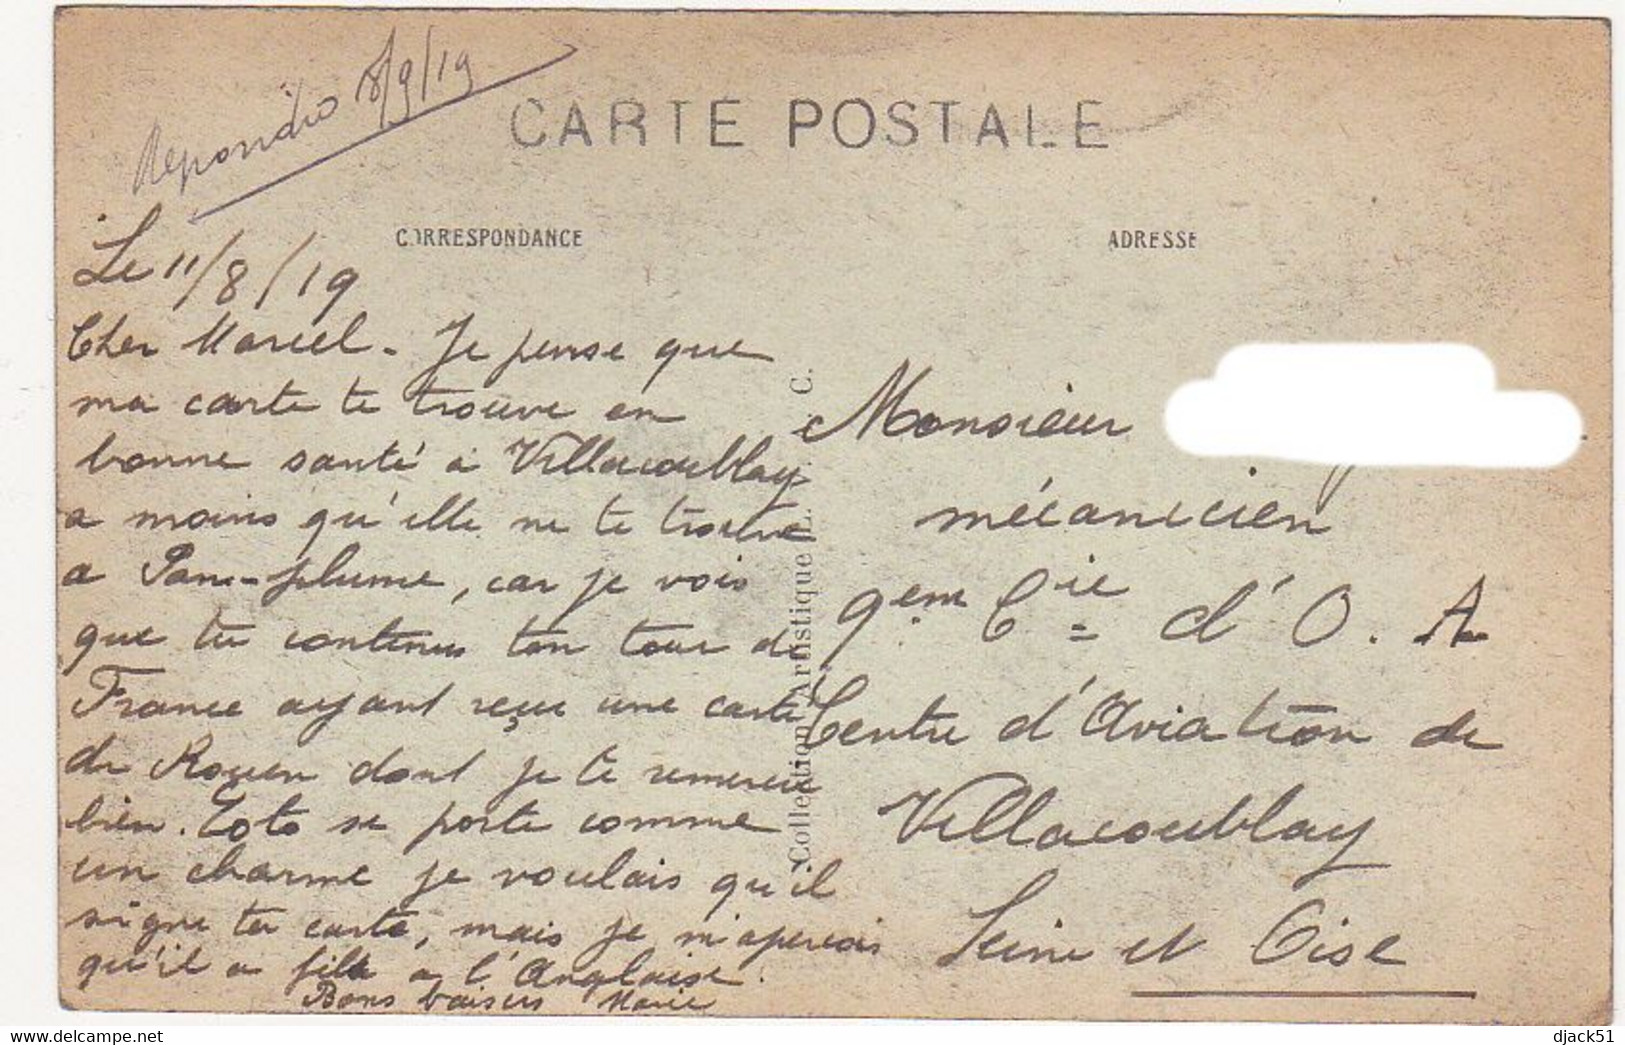 Repondu 8/9/19
CARTE POSTALE
CORRESPONDANCE
ADRESSE
Le 11/8/19
Cher Marcel - Je pense que
ma carte te trouve en
bonne santé a Villacoublay
a moins qu'elle ne te trouve
a Pam-plume, car je vois
que tu continus ton tour de
France ayant reçue une carte
de Rouen dont je te remercie
bien. Toto se porte comme
un charme je voulais qu'il
signe ta carte, mais je m'aperçois
qu'il a filé a l'Anglaise.
Bons baisers Marie
Collection Artistique L. C.
Monsieur
mécanicien
9em Cie d'O. A
Centre d'Aviation de
Villacoublay
Seine et Oise
djack51